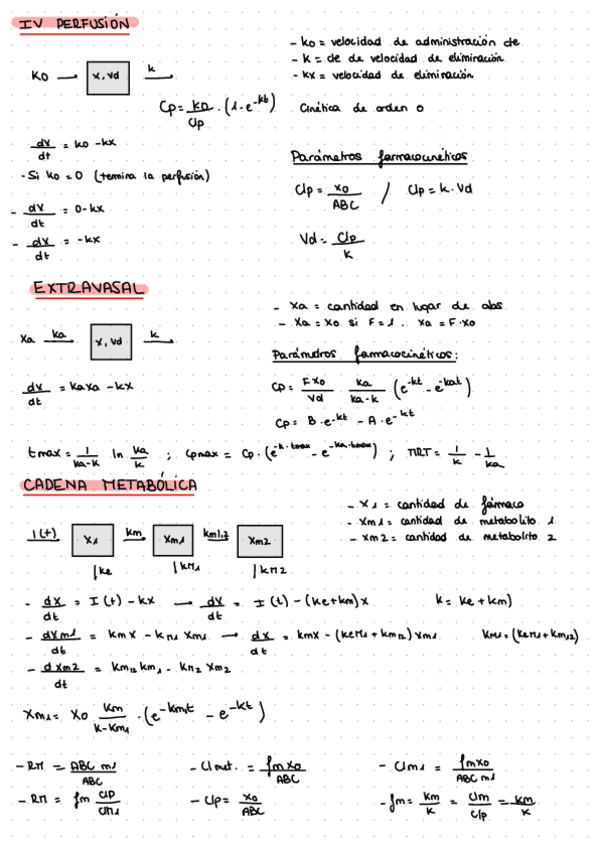 IV PERFUSIÓN
- k0 = velocidad de administración de
- k = cte de velocidad de eliminación
- kx = velocidad de eliminación
K0 → x, Vd k →
Cp = k0/Clp · (1-e^-kt) Cinética de orden 0
dx/dt = k0 - kx
Parámetros farmacocinéticos
- Si k0 = 0 (termina la perfusión)
Clp = x0/ABC / Clp = k · Vd
- dx/dt = 0 - kx
- dx/dt = -kx
Vd = Clp/k
EXTRAVASAL
- Xa = cantidad en lugar de abs
- Xa = X0 si F = 1. Xa = F·X0
Xa ka → x, Vd k →
Parámetros farmacocinéticos:
dx/dt = kaxa - kx
Cp = F x0/Vd ka/ka-k (e^-kt - e^-kat)
Cp = B·e^-kt - A·e^-kt
tmax = 1/ka-k ln ka/k ; Cpmax = Cp · (e^-k·tmax - e^-ka·tmax) ; MRT = 1/k - 1/ka
CADENA METABÓLICA
- X1 = cantidad de fármaco
- Xm1 = cantidad de metabolito 1
- Xm2 = cantidad de metabolito 2
I(t) → X1 km → Xm1 km1,2 → Xm2
ke kM1 kM2
- dx/dt = I(t) - kx → dx/dt = I(t) - (ke+km)x k = ke + km)
- dxm1/dt = kmx - kM1 xm1 → dx/dt = kmx - (keM1 + km12) xm1 kM1 = (keM1 + km12)
- dxm2/dt = km12 km1 - kM2 xm2
Xm1 = X0 km/k-km1 · (e^-km1t - e^-kt)
- RM = ABC m1/ABC - Cl met. = fmx0/ABC - Clm1 = fmx0/ABC m1
- RM = fm Clp/Clm1 - Clp = x0/ABC - fm = km/k = Clm/Clp = km/k